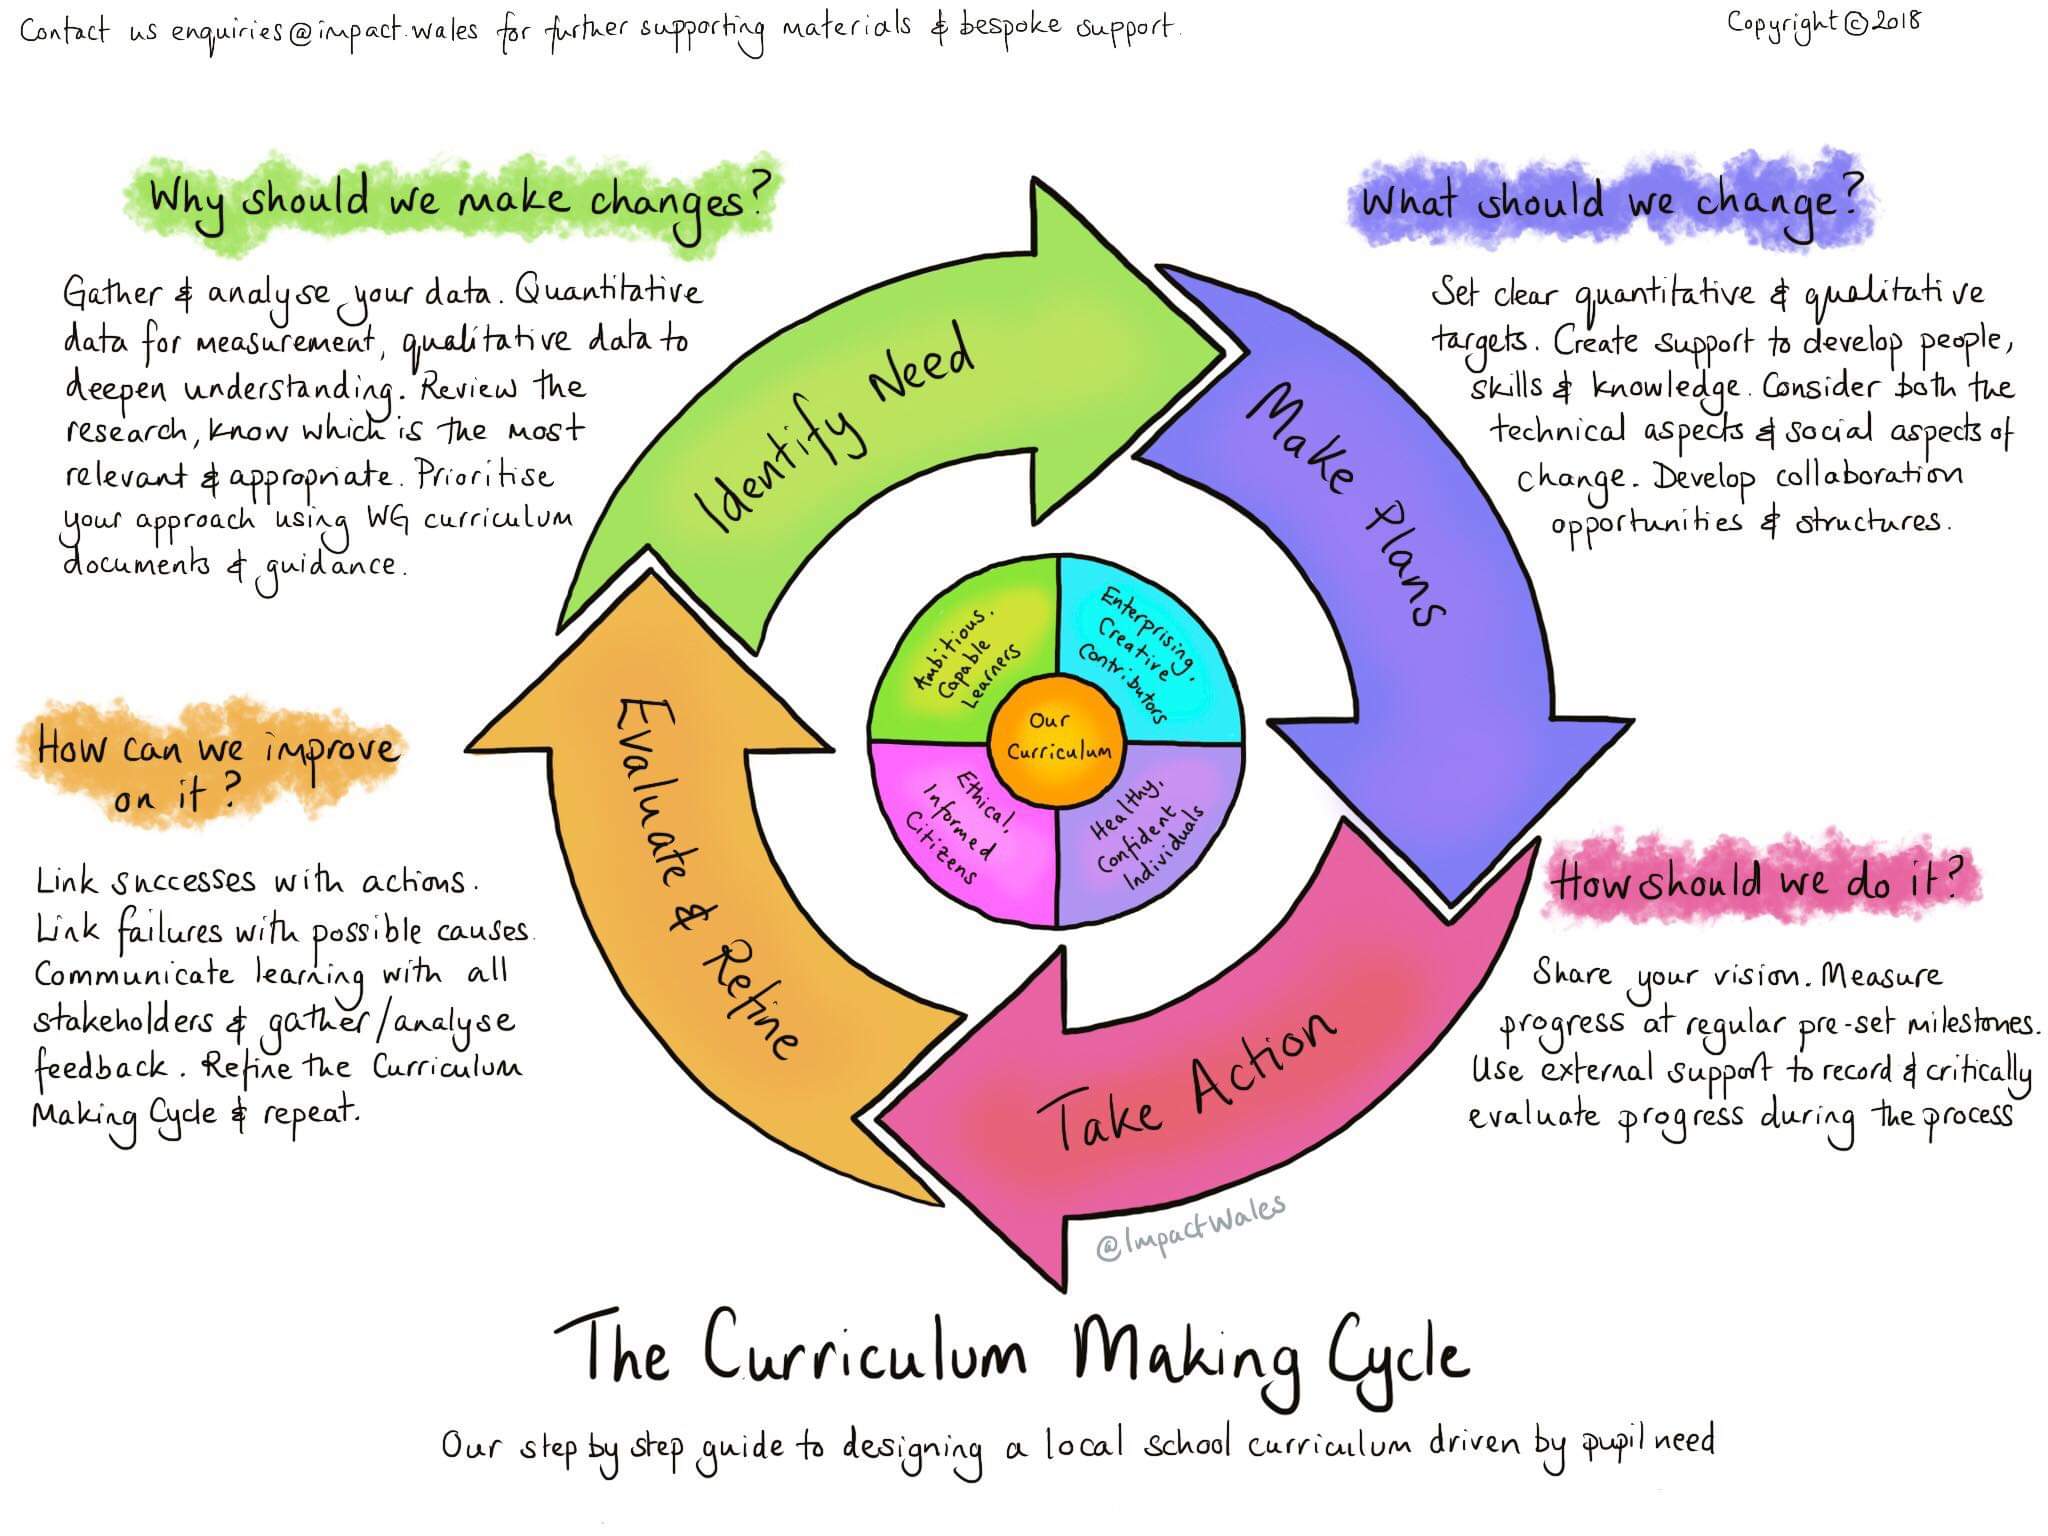 Contact us enquiries@impact.wales for further supporting materials & bespoke support.
Copyright © 2018
Why should we make changes?
Gather & analyse your data. Quantitative
data for measurement, qualitative data to
deepen understanding. Review the
research, know which is the most
relevant & appropriate. Prioritise
your approach using WG curriculum
documents & guidance.
What should we change?
Set clear quantitative & qualitative
targets. Create support to develop people,
skills & knowledge. Consider both the
technical aspects & social aspects of
change. Develop collaboration
opportunities & structures.
Identify Need
Make Plans
Take Action
Evaluate & Refine
Ambitious.
Capable
Learners
Enterprising,
Creative
Contributors
Our
Curriculum
Ethical,
Informed
Citizens
Healthy,
Confident
Individuals
How should we do it?
Share your vision. Measure
progress at regular pre-set milestones.
Use external support to record & critically
evaluate progress during the process
How can we improve
on it?
Link successes with actions.
Link failures with possible causes.
Communicate learning with all
stakeholders & gather/analyse
feedback. Refine the Curriculum
Making Cycle & repeat.
@ImpactWales
The Curriculum Making Cycle
Our step by step guide to designing a local school curriculum driven by pupil need